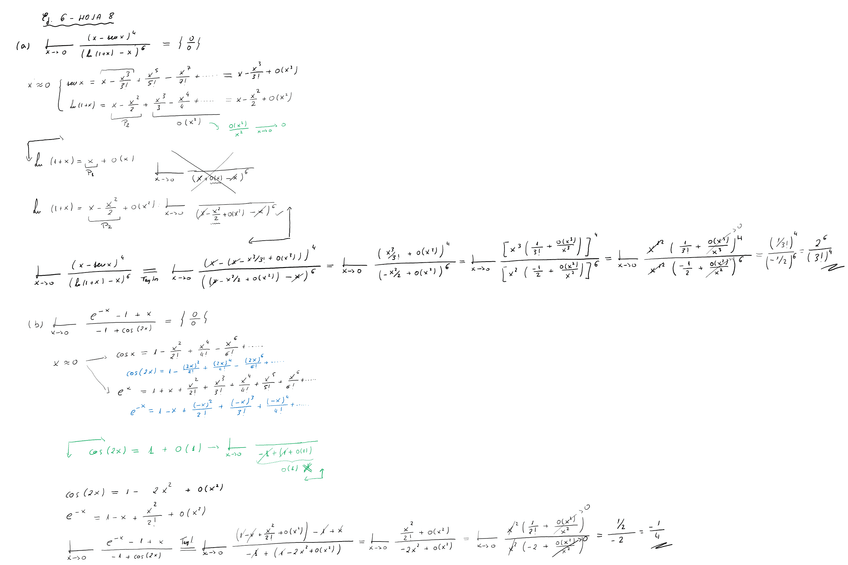 Ej. 6 - HOJA 8
(a) lim x→0 (x - sen x)^4 / (ln(1+x) - x)^6 = { 0/0 }
x≈0 { sen x = x - x^3/3! + x^5/5! - x^7/7! + ..... = x - x^3/3! + o(x^3)
ln(1+x) = x - x^2/2 + x^3/3 - x^4/4 + ..... = x - x^2/2 + o(x^2)
P2 o(x^2) → o(x^2)/x^2 → x→0 0
ln (1+x) = x + o(x) lim x→0 / (x + o(x) - x)^6
P1
ln (1+x) = x - x^2/2 + o(x^2) lim x→0 / (x - x^2/2 + o(x^2) - x)^6
P2
lim x→0 (x - sen x)^4 / (ln(1+x) - x)^6 = Taylor lim x→0 (x - (x - x^3/3! + o(x^3)))^4 / ((x - x^2/2 + o(x^2)) - x)^6 = lim x→0 (x^3/3! + o(x^3))^4 / (-x^2/2 + o(x^2))^6 = lim x→0 [x^3 (1/3! + o(x^3)/x^3)]^4 / [x^2 (-1/2 + o(x^2)/x^2)]^6 = lim x→0 x^12 (1/3! + o(x^3)/x^3 →0)^4 / x^12 (-1/2 + o(x^2)/x^2)^6 = (1/3!)^4 / (-1/2)^6 = 2^6 / (3!)^4
(b) lim x→0 e^-x - 1 + x / -1 + cos(2x) = { 0/0 }
x≈0 → cos x = 1 - x^2/2! + x^4/4! - x^6/6! + .....
cos(2x) = 1 - (2x)^2/2! + (2x)^4/4! - (2x)^6/6! + .....
e^x = 1 + x + x^2/2! + x^3/3! + x^4/4! + x^5/5! + x^6/6! + .....
e^-x = 1 - x + (-x)^2/2! + (-x)^3/3! + (-x)^4/4! + .....
cos(2x) = 1 + o(1) → lim x→0 / -1 + (1 + o(1))
o(1)
cos(2x) = 1 - 2x^2 + o(x^2)
e^-x = 1 - x + x^2/2! + o(x^2)
lim x→0 e^-x - 1 + x / -1 + cos(2x) = Tayl lim x→0 (1 - x + x^2/2! + o(x^2)) - 1 + x / -1 + (1 - 2x^2 + o(x^2)) = lim x→0 x^2/2! + o(x^2) / -2x^2 + o(x^2) = lim x→0 x^2 (1/2! + o(x^2)/x^2 →0) / x^2 (-2 + o(x^2)/x^2 →0) = 1/2 / -2 = -1/4